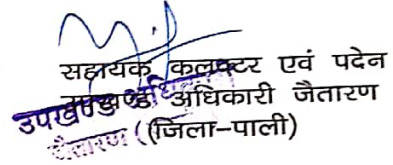 सहायक कलक्टर एवं पदेन
उपखण्ड अधिकारी जैतारण
(जिला-पाली)
उपखण्ड अधि
जैतारण